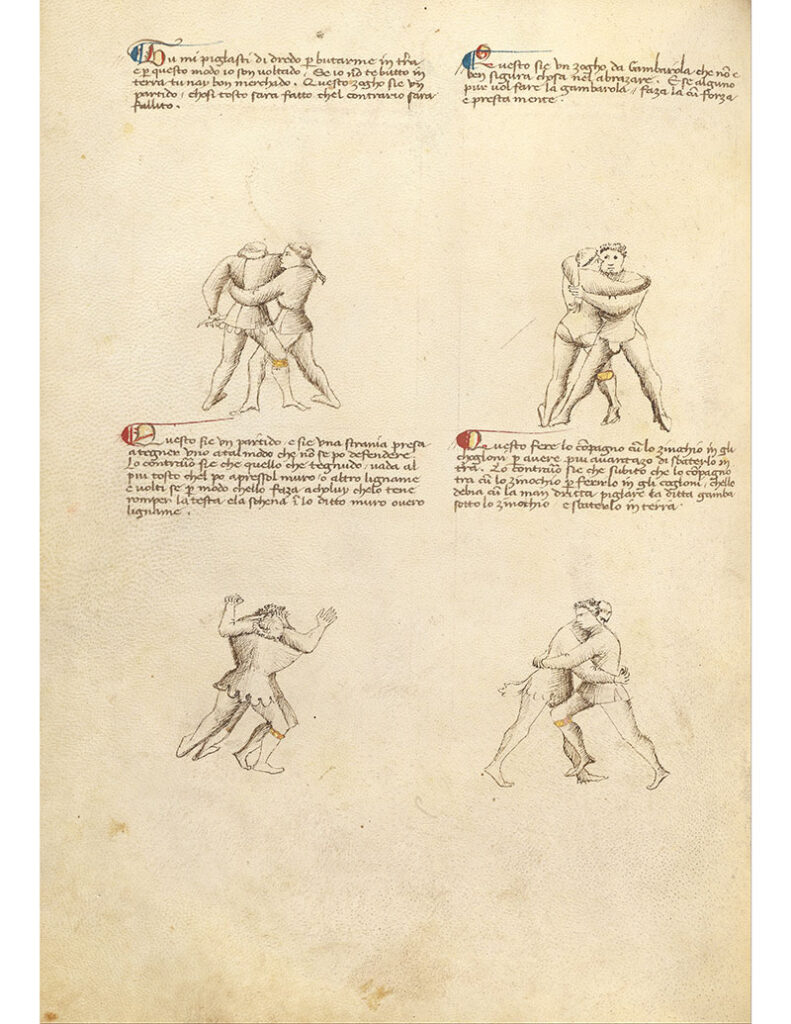 Tu mi piglasti di dredo p butarme in trã
e p questo modo io son voltado. Se io nõ te butto in
terra tu nay bon merchado. Questo zogho sie un
partido, chosi tosto sara fatto chel contrario sara
fallito.
Questo sie un zogho, da Gambarola che nõ e
ben sigura chosa nel abrazare. E se alguno
pur vol fare la gambarola, faza la cũ forza
e presta mente.
Questo sie un partido, e sie una strania presa
a tegner uno a tal modo che nõ se po defendere.
Lo contrario sie che quello che tegnudo, vada al
piu tosto chel po apresso l muro, o altro ligname
e volti se p modo chello faza achluy chelo tene
romper la testa e la schena ĩ lo ditto muro overo
ligname.
Questo fere lo cõpagno cũ lo zinochio in gli
chogloni p avere piu avantazo di sbaterlo in
trã. Lo contrario sie che subito che lo cõpagno
tra cũ lo zinochio p ferirlo in gli cogloni, chello
debia cũ la man dritta piglare la ditta gamba
sotto lo zinochio, e sbaterlo in terra.